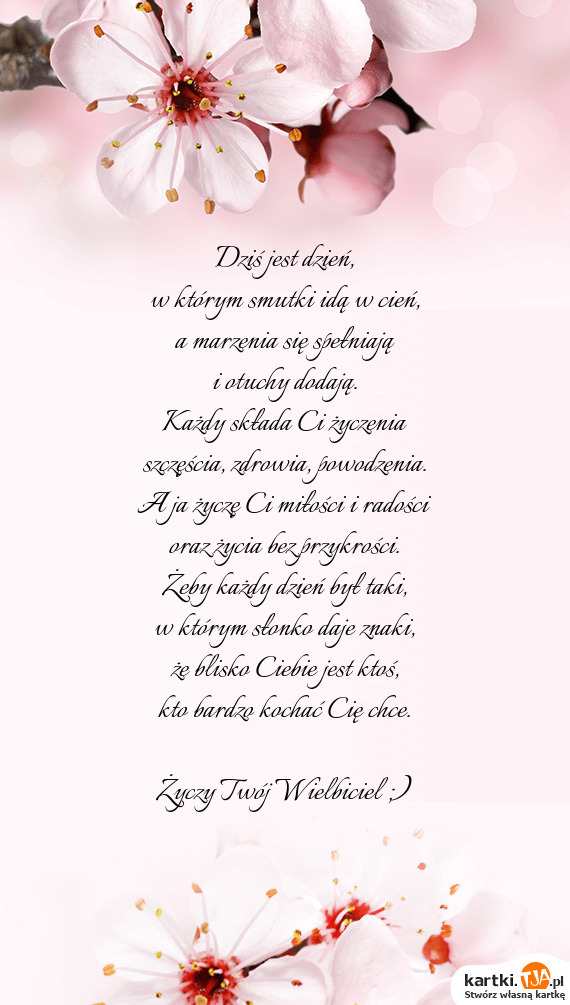 Dziś jest dzień,
w którym smutki idą w cień,
a marzenia się spełniają
i otuchy dodają.
Każdy składa Ci życzenia
szczęścia, zdrowia, powodzenia.
A ja życzę Ci miłości i radości
oraz życia bez przykrości.
Żeby każdy dzień był taki,
w którym słonko daje znaki,
żę blisko Ciebie jest ktoś,
kto bardzo kochać Cię chce.
Życzy Twój Wielbiciel ;)
kartki.TJA.pl
Stwórz własną kartkę